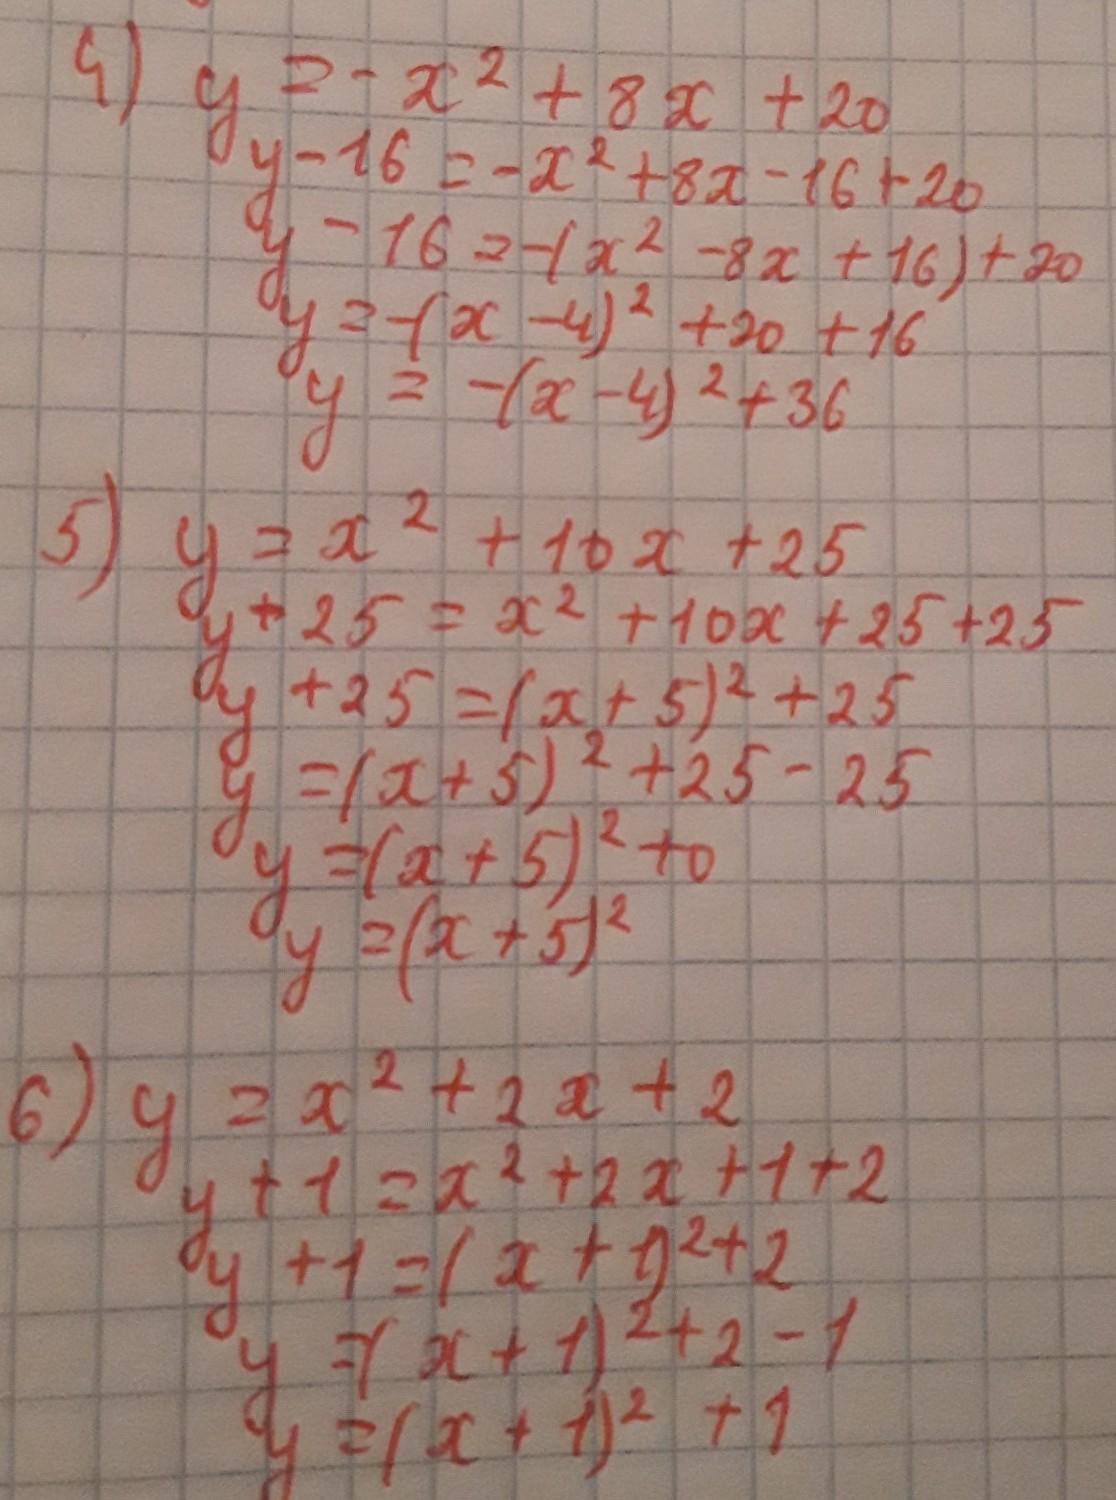 4) y = - x² + 8x + 20
y - 16 = -x² + 8x - 16 + 20
y - 16 = -(x² - 8x + 16) + 20
y = -(x - 4)² + 20 + 16
y = -(x - 4)² + 36
5) y = x² + 10x + 25
y + 25 = x² + 10x + 25 + 25
y + 25 = (x + 5)² + 25
y = (x + 5)² + 25 - 25
y = (x + 5)² + 0
y = (x + 5)²
6) y = x² + 2x + 2
y + 1 = x² + 2x + 1 + 2
y + 1 = (x + 1)² + 2
y = (x + 1)² + 2 - 1
y = (x + 1)² + 1